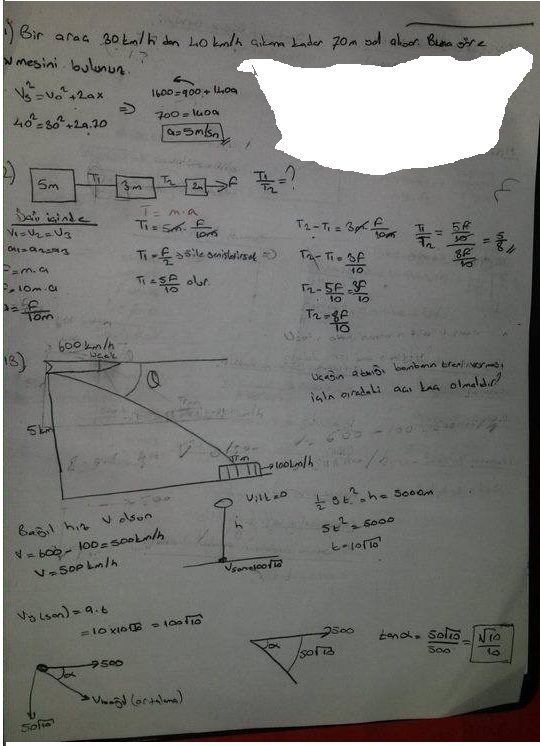 1) Bir araç 30km/h dan 40 km/h çıkana kadar 70m yol alıyor. Buna göre
ivmesini bulunuz.
Vs² = Vo² + 2ax
40² = 30² + 2a.70
⇒
1600 = 900 + 140a
700 = 140a
a = 5m/sn
2)
5m T1 3m T2 2m F
T1/T2 = ?
V1 = V2 = V3
a1 = a2 = a3
F = m.a
F = 10m.a
a = F/10m
T = m.a
T1 = 5m . F/10m
T1 = F/2 ⇒
T1 = 5F/10 olur.
T2 - T1 = 3m . F/10m
T2 - T1 = 3F/10
T2 - 5F/10 = 3F/10
T2 = 8F/10
T1/T2 = 5F/10 / 8F/10 = 5/8
3)
600 km/h
uçak
θ
5 km
Tren
100km/h
Uçağın attığı bombanın treni vurması
için aradaki açı kaç olmalıdır?
Bağıl hız V olsun
V = 600 - 100 = 500 km/h
V = 500 km/h
Vilk = 0
h
Vson = 100√10
1/2 gt² = h = 5000m
5t² = 5000
t = 10√10
Vy (son) = g.t
= 10 x 10√10 = 100√10
500
α
Vbağıl (ortalama)
50√10
500
α
50√10
tanα = 50√10/500 = √10/10